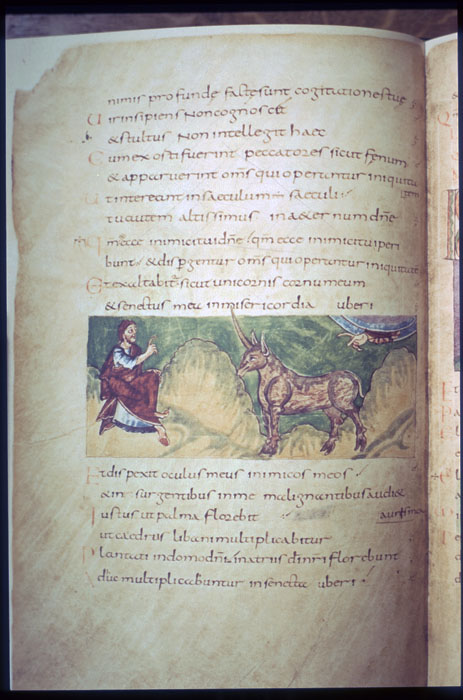 nimis profunde factesunt cogitationestue
Uir insipiens Noncognoscet
&stultus Non intellegit haec
Cumexorti fuerint peccatores sicut fenum
& apparuerint om̄s qui operantur iniquita
Utintereant insaeculum saeculi
tuautem altissimus inaeternum dn̄e
qm̄ ecce inimicituidn̄e qm̄ ecce inimicitui peri
bunt &dispergentur om̄s quioperantur iniquitatē
Etexaltabit sicut unicornis cornumeum
&senectus mea inmisericordia uberi
Etdispexit oculus meus inimicos meos
&in surgentibus inme malignantibus audi&
Iustus ut palma florebit
aurismea
ut caedrus libani multiplicabitur
Plantati indomodn̄i inatriis dīnri florebunt
Adhuc multiplicabuntur insenecta uberi